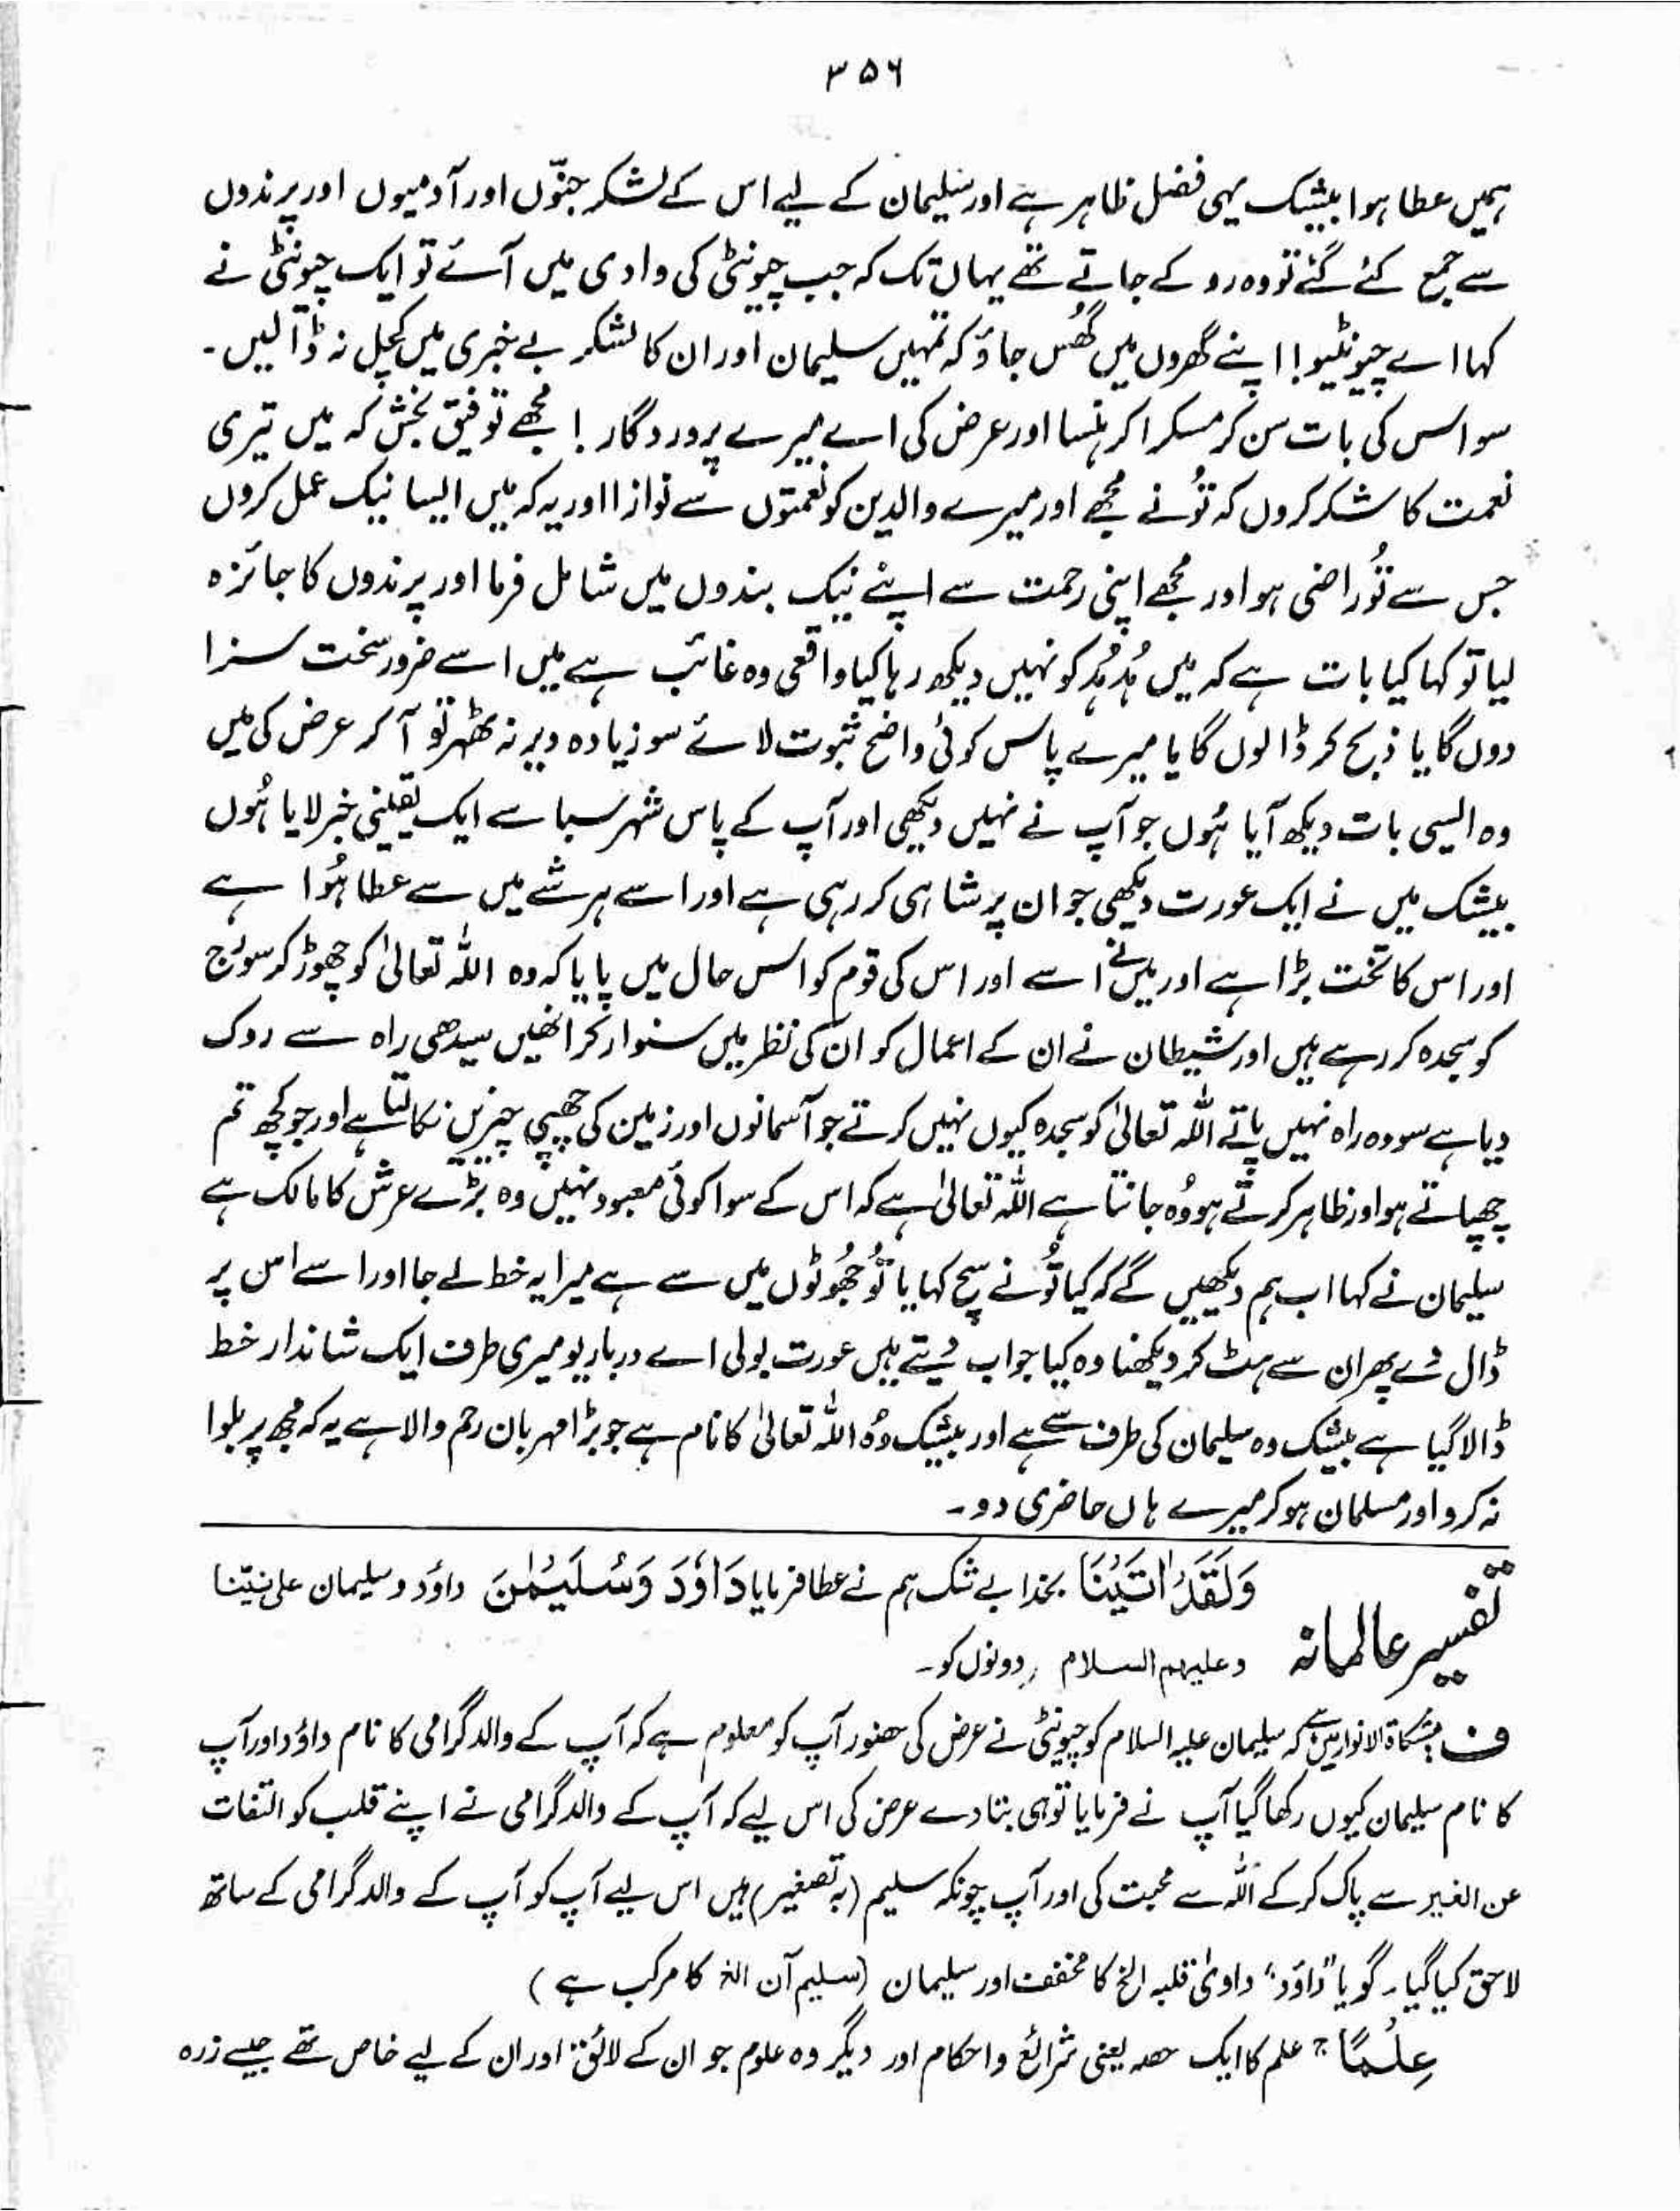 ۳۵۶
ہمیں عطا ہوا بیشک یہی فضل ظاہر ہے اور سلیمان کے لیے اس کے لشکر جنّوں اور آدمیوں اور پرندوں
سے جمع کئے گئے تو وہ روکے جاتے تھے یہاں تک کہ جب چیونٹی کی وادی میں آئے تو ایک چیونٹی نے
کہا اے چیونٹیو! اپنے گھروں میں گھُس جاؤ کہ تمہیں سلیمان اور ان کا لشکر بے خبری میں کچل نہ ڈالیں۔
سو اس کی بات سن کر مسکرا کر ہنسا اور عرض کی اے میرے پروردگار! مجھے توفیق بخش کہ میں تیری
نعمت کا شکر کروں کہ تُو نے مجھے اور میرے والدین کو نعمتوں سے نوازا اور یہ کہ میں ایسا نیک عمل کروں
جس سے تُو راضی ہو اور مجھے اپنی رحمت سے اپنے نیک بندوں میں شامل فرما اور پرندوں کا جائزہ
لیا تو کہا کیا بات ہے کہ میں ہُدہُد کو نہیں دیکھ رہا کیا واقعی وہ غائب ہے میں اسے ضرور سخت سزا
دوں گا یا ذبح کر ڈالوں گا یا میرے پاس کوئی واضح ثبوت لائے سو زیادہ دیر نہ ٹھہر تو آ کر عرض کی میں
وہ ایسی بات دیکھ آیا ہُوں جو آپ نے نہیں دیکھی اور آپ کے پاس شہر سبا سے ایک یقینی خبر لایا ہُوں
بیشک میں نے ایک عورت دیکھی جو ان پر شاہی کر رہی ہے اور اسے ہر شے میں سے عطا ہُوا ہے
اور اس کا تخت بڑا ہے اور میں نے اسے اور اس کی قوم کو اس حال میں پایا کہ وہ اللہ تعالیٰ کو چھوڑ کر سورج
کو سجدہ کر رہے ہیں اور شیطان نے ان کے اعمال کو ان کی نظر میں سنوار کر انھیں سیدھی راہ سے روک
دیا ہے سو وہ راہ نہیں پاتے اللہ تعالیٰ کو سجدہ کیوں نہیں کرتے جو آسمانوں اور زمین کی چھپی چیزیں نکالتا ہے اور جو کچھ تم
چھپاتے ہو اور ظاہر کرتے ہو وُہ جانتا ہے اللہ تعالیٰ ہے کہ اس کے سوا کوئی معبود نہیں وہ بڑے عرش کا مالک ہے
سلیمان نے کہا اب ہم دیکھیں گے کہ کیا تُو نے سچ کہا یا تُو جھُوٹوں میں سے ہے میرا یہ خط لے جا اور اسے اس پر
ڈال دے پھر ان سے ہٹ کر دیکھنا وہ کیا جواب دیتے ہیں عورت بولی اے درباریو میری طرف ایک شاندار خط
ڈالا گیا ہے بیشک وہ سلیمان کی طرف سے ہے اور بیشک وُہ اللہ تعالیٰ کا نام ہے جو بڑا مہربان رحم والا ہے یہ کہ مجھ پر بلوا
نہ کرو اور مسلمان ہو کر میرے ہاں حاضری دو۔
تفسیر عالمانہ وَلَقَدْ اٰتَيْنَا بخدا بے شک ہم نے عطا فرمایا دَاوٗدَ وَسُلَيْمٰنَ داؤد و سلیمان علیٰ نبیّنا
و علیہم السلام دونوں کو۔
ف مشکاۃ الانوار میں ہے کہ سلیمان علیہ السلام کو چیونٹی نے عرض کی حضور آپ کو معلوم ہے کہ آپ کے والد گرامی کا نام داؤد اور آپ
کا نام سلیمان کیوں رکھا گیا آپ نے فرمایا تو ہی بتا دے عرض کی اس لیے کہ آپ کے والد گرامی نے اپنے قلب کو التفات
عن الغیر سے پاک کر کے اللہ سے محبت کی اور آپ چونکہ سلیم (بہ تصغیر) ہیں اس لیے آپ کو آپ کے والد گرامی کے ساتھ
لاحق کیا گیا۔ گویا "داؤد" داویٰ قلبہ الخ کا مخفف اور سلیمان (سلیم آن الخ کا مرکب ہے)
عِلْمًا علم کا ایک حصہ یعنی شرائع و احکام اور دیگر وہ علوم جو ان کے لائق اور ان کے لیے خاص تھے جیسے زرہ